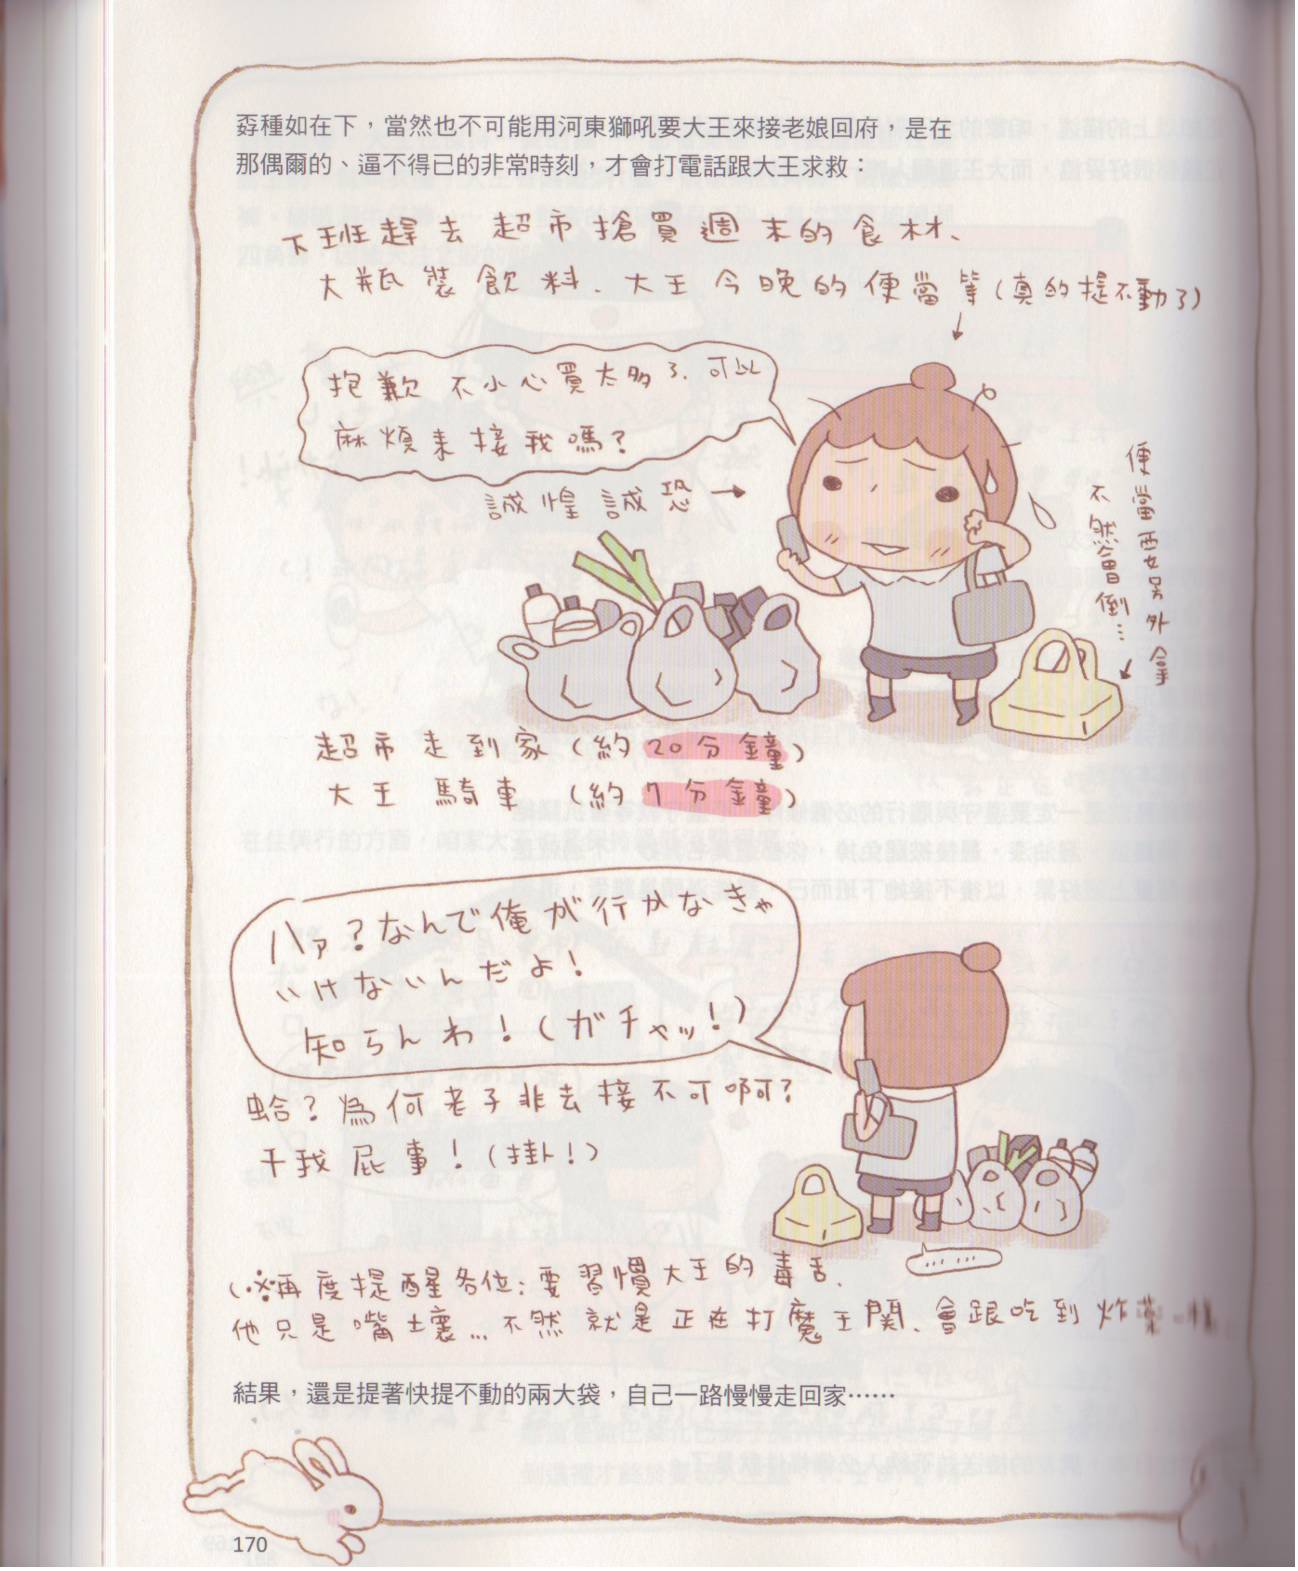 孬種如在下，當然也不可能用河東獅吼要大王來接老娘回府，是在
那偶爾的、逼不得已的非常時刻，才會打電話跟大王求救：
下班趕去超市搶買週末的食材、
大瓶裝飲料、大王今晚的便當等(真的提不動了)
抱歉 不小心買太多了、可以
麻煩來接我嗎？
誠惶誠恐→
便當要另外拿
不然會倒…
超市走到家（約20分鐘）
大王 騎車（約7分鐘）
ハァ？なんで俺が行かなきゃ
いけないんだよ！
知らんわ！（ガチャッ！）
蛤？為何老子非去接不可啊？
干我屁事！（掛！）
……
(※再度提醒各位：要習慣大王的毒舌、
他只是嘴壞…不然就是正在打魔王關、會跟吃到炸藥一樣
結果，還是提著快提不動的兩大袋，自己一路慢慢走回家……
170